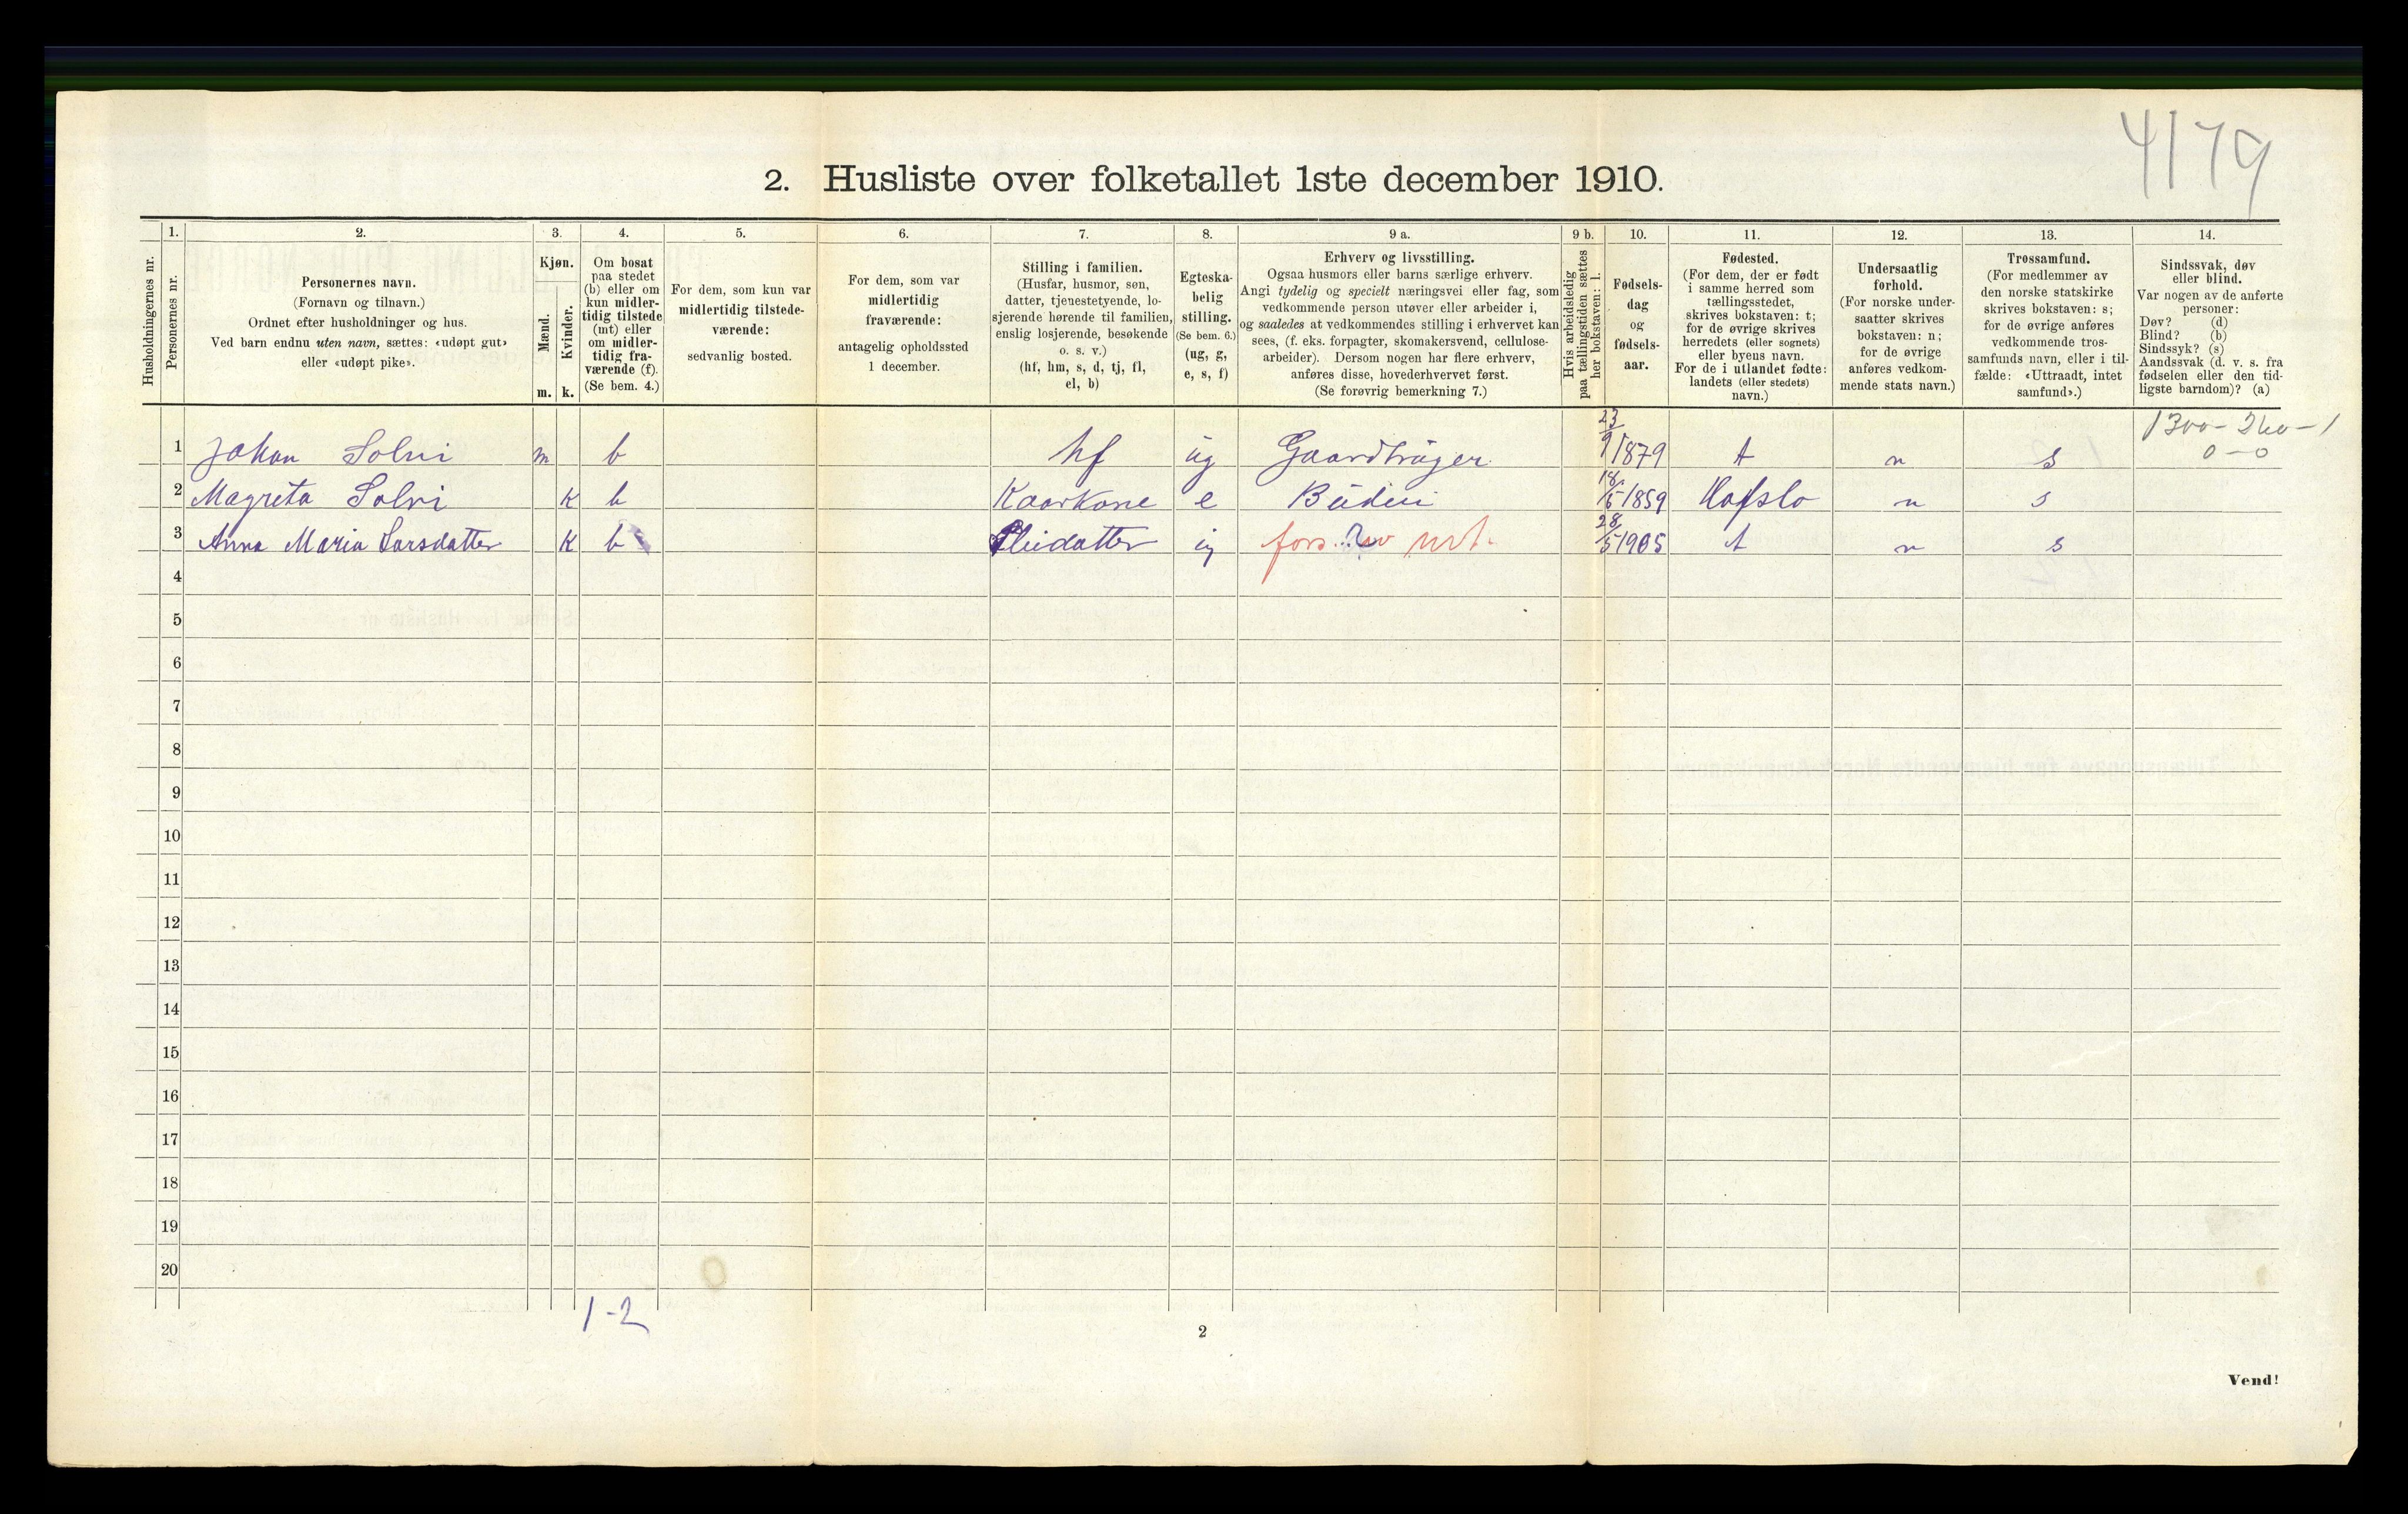 4179
2. Husliste over folketallet 1ste december 1910.
Husholdningernes nr.
1.
Personernes nr.
2.
Personernes navn.
(Fornavn og tilnavn.)
Ordnet efter husholdninger og hus.
Ved barn endnu uten navn, sættes: «udøpt gut»
eller «udøpt pike».
3.
Kjøn.
Mænd.
Kvinder.
m. k.
4.
Om bosat
paa stedet
(b) eller om
kun midler-
tidig tilstede
(mt) eller
om midler-
tidig fra-
værende (f).
(Se bem. 4.)
5.
For dem, som kun var
midlertidig tilstede-
værende:
sedvanlig bosted.
6.
For dem, som var
midlertidig
fraværende:
antagelig opholdssted
1 december.
7.
Stilling i familien.
(Husfar, husmor, søn,
datter, tjenestetyende, lo-
sjerende hørende til familien,
enslig losjerende, besøkende
o. s. v.)
(hf, hm, s, d, tj, fl,
el, b)
8.
Egteska-
belig
stilling.
(Se bem. 6.)
(ug, g,
e, s, f)
9 a.
Erhverv og livsstilling.
Ogsaa husmors eller barns særlige erhverv.
Angi tydelig og specielt næringsvei eller fag, som
vedkommende person utøver eller arbeider i,
og saaledes at vedkommendes stilling i erhvervet kan
sees, (f. eks. forpagter, skomakersvend, cellulose-
arbeider). Dersom nogen har flere erhverv,
anføres disse, hovederhvervet først.
(Se forøvrig bemerkning 7.)
9 b.
Hvis arbeidsledig
paa tællingstiden sættes
her bokstaven: l.
10.
Fødsels-
dag
og
fødsels-
aar.
11.
Fødested.
(For dem, der er født
i samme herred som
tællingsstedet,
skrives bokstaven: t;
for de øvrige skrives
herredets (eller sognets)
eller byens navn.
For de i utlandet fødte:
landets (eller stedets)
navn.)
12.
Undersaatlig
forhold.
(For norske under-
saatter skrives
bokstaven: n;
for de øvrige
anføres vedkom-
mende stats navn.)
13.
Trossamfund.
(For medlemmer av
den norske statskirke
skrives bokstaven: s;
for de øvrige anføres
vedkommende tros-
samfunds navn, eller i til-
fælde: «Uttraadt, intet
samfund».)
14.
Sindssvak, døv
eller blind.
Var nogen av de anførte
personer:
Døv? (d)
Blind? (b)
Sindssyk? (s)
Aandssvak (d. v. s. fra
fødselen eller den tid-
ligste barndom)? (a)
1300-260-1
0-0
1 Johan Solvi m b hf ug Gaardbruger 23/9 1879 t n s
2 Magreta Solvi k b Kaarkone e 18/5 1859 Hafslo n s
3 Anna Maria Larsdatter k b Pleidatter ug fors. 28/5 1905 t n s
4
5
6
7
8
9
10
11
12
13
14
15
16
17
18
19
20
1-2
2
Vend!